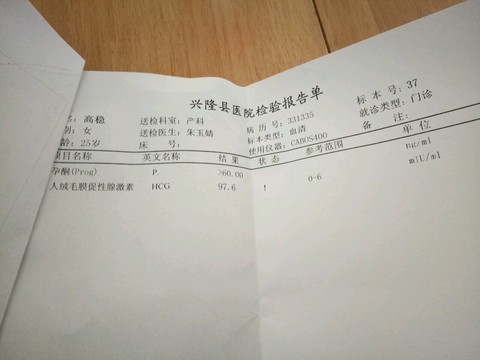 兴隆县医院检验报告单
名: 高稳 送检科室: 产科 病 历 号: 331335 标 本 号: 37
别: 女 送检医生: 朱玉婧 标本类型: 血清 就诊类型: 门诊
龄: 25岁 床 号: 使用仪器: CABOS400 备 注:
项目名称 英文名称 结 果 状 态 参考范围 单 位
孕酮(Prog) P. >60.00 ng/ml
人绒毛膜促性腺激素 HCG 97.6 ! 0-6 mIU/ml